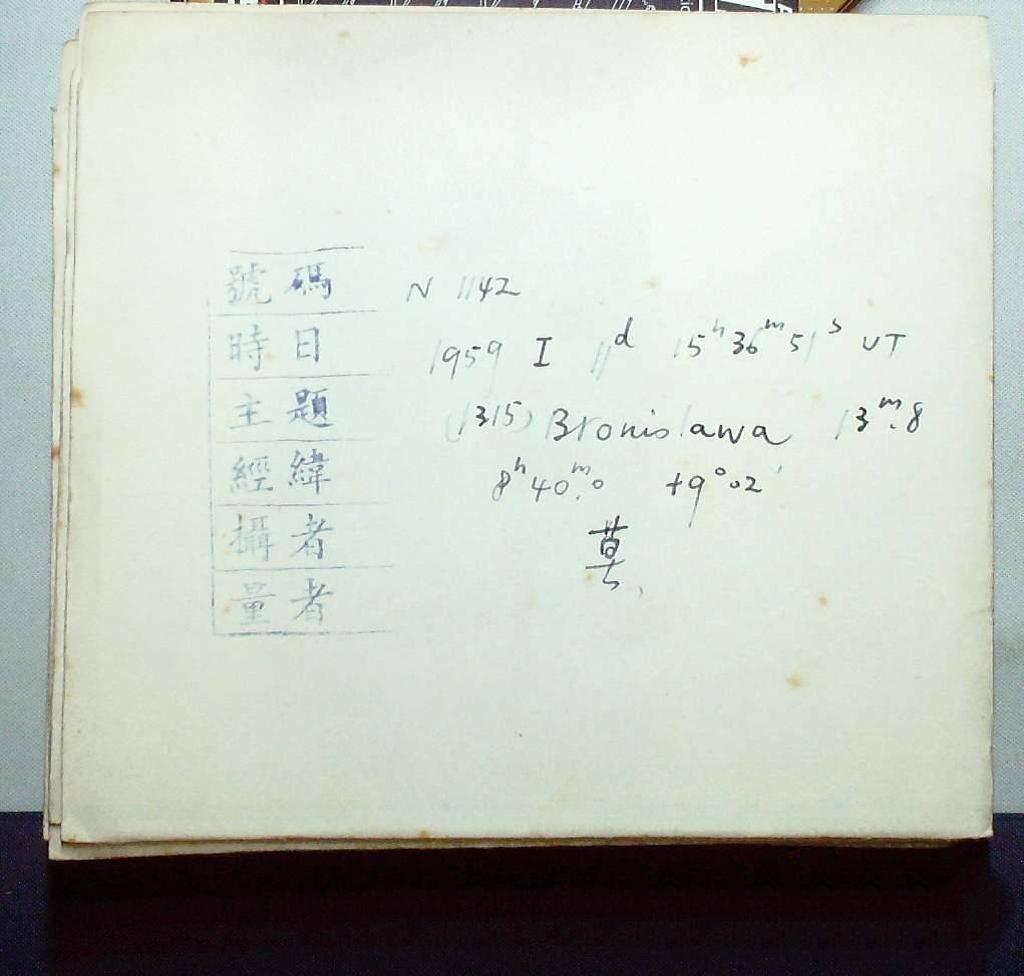 號碼 N 1142
時日 1959 I 11ᵈ 15ʰ36ᵐ51ˢ UT
主題 (1315) Bronislawa 13ᵐ.8
經緯 8ʰ40ᵐ.0 +9°02'
攝者
量者